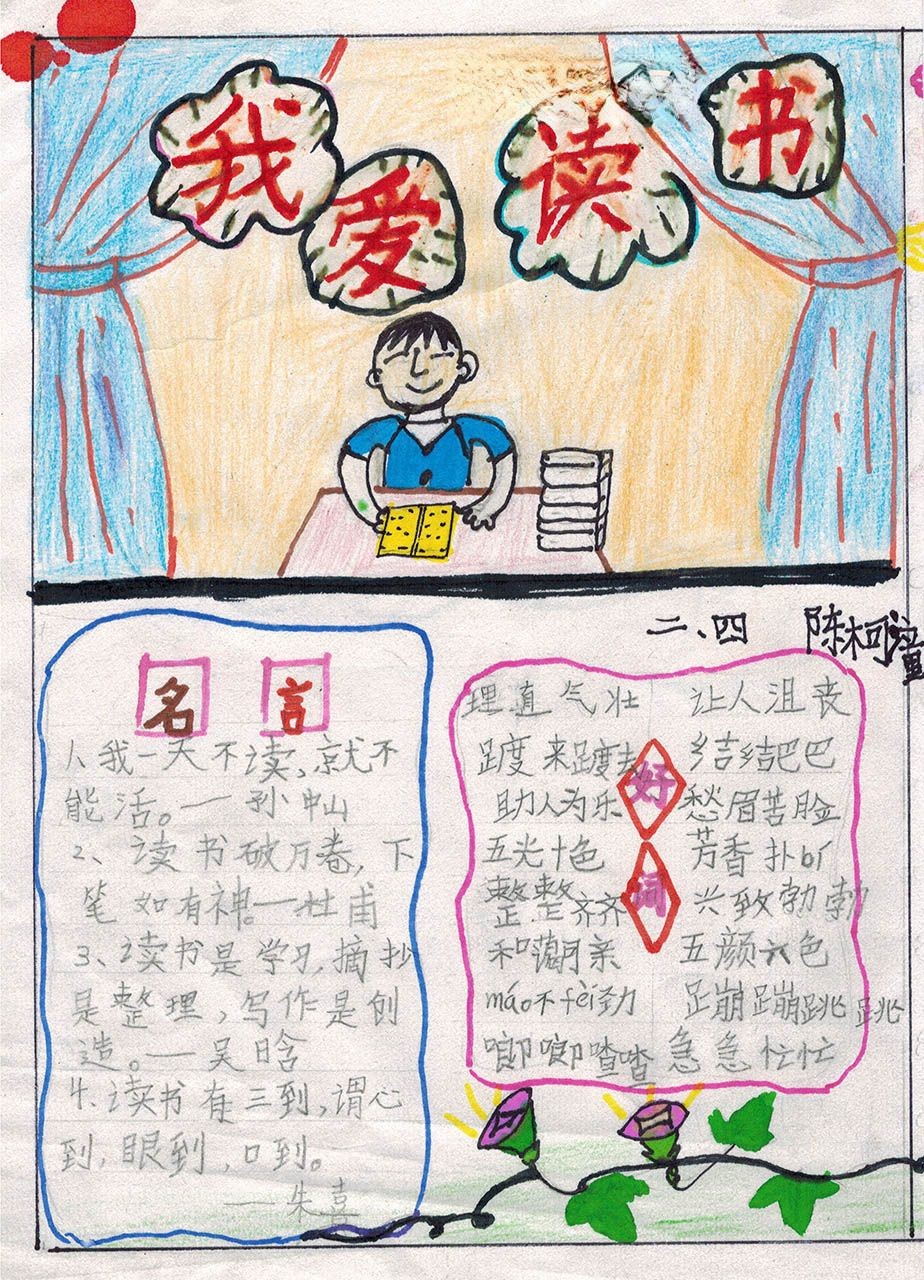 我爱读书
二、四 陈柯潼
名言
1、我一天不读,就不
能活。——孙中山
2、读书破万卷,下
笔如有神。——杜甫
3、读书是学习,摘抄
是整理,写作是创
造。——吴晗
4、读书有三到,谓心
到,眼到,口到。
——朱熹
好词
理直气壮 让人沮丧
踱来踱去 结结巴巴
助人为乐 愁眉苦脸
五光十色 芳香扑bí
整整齐齐 兴致勃勃
和蔼可亲 五颜六色
máo不fèi劲 蹦蹦跳跳
唧唧喳喳 急急忙忙